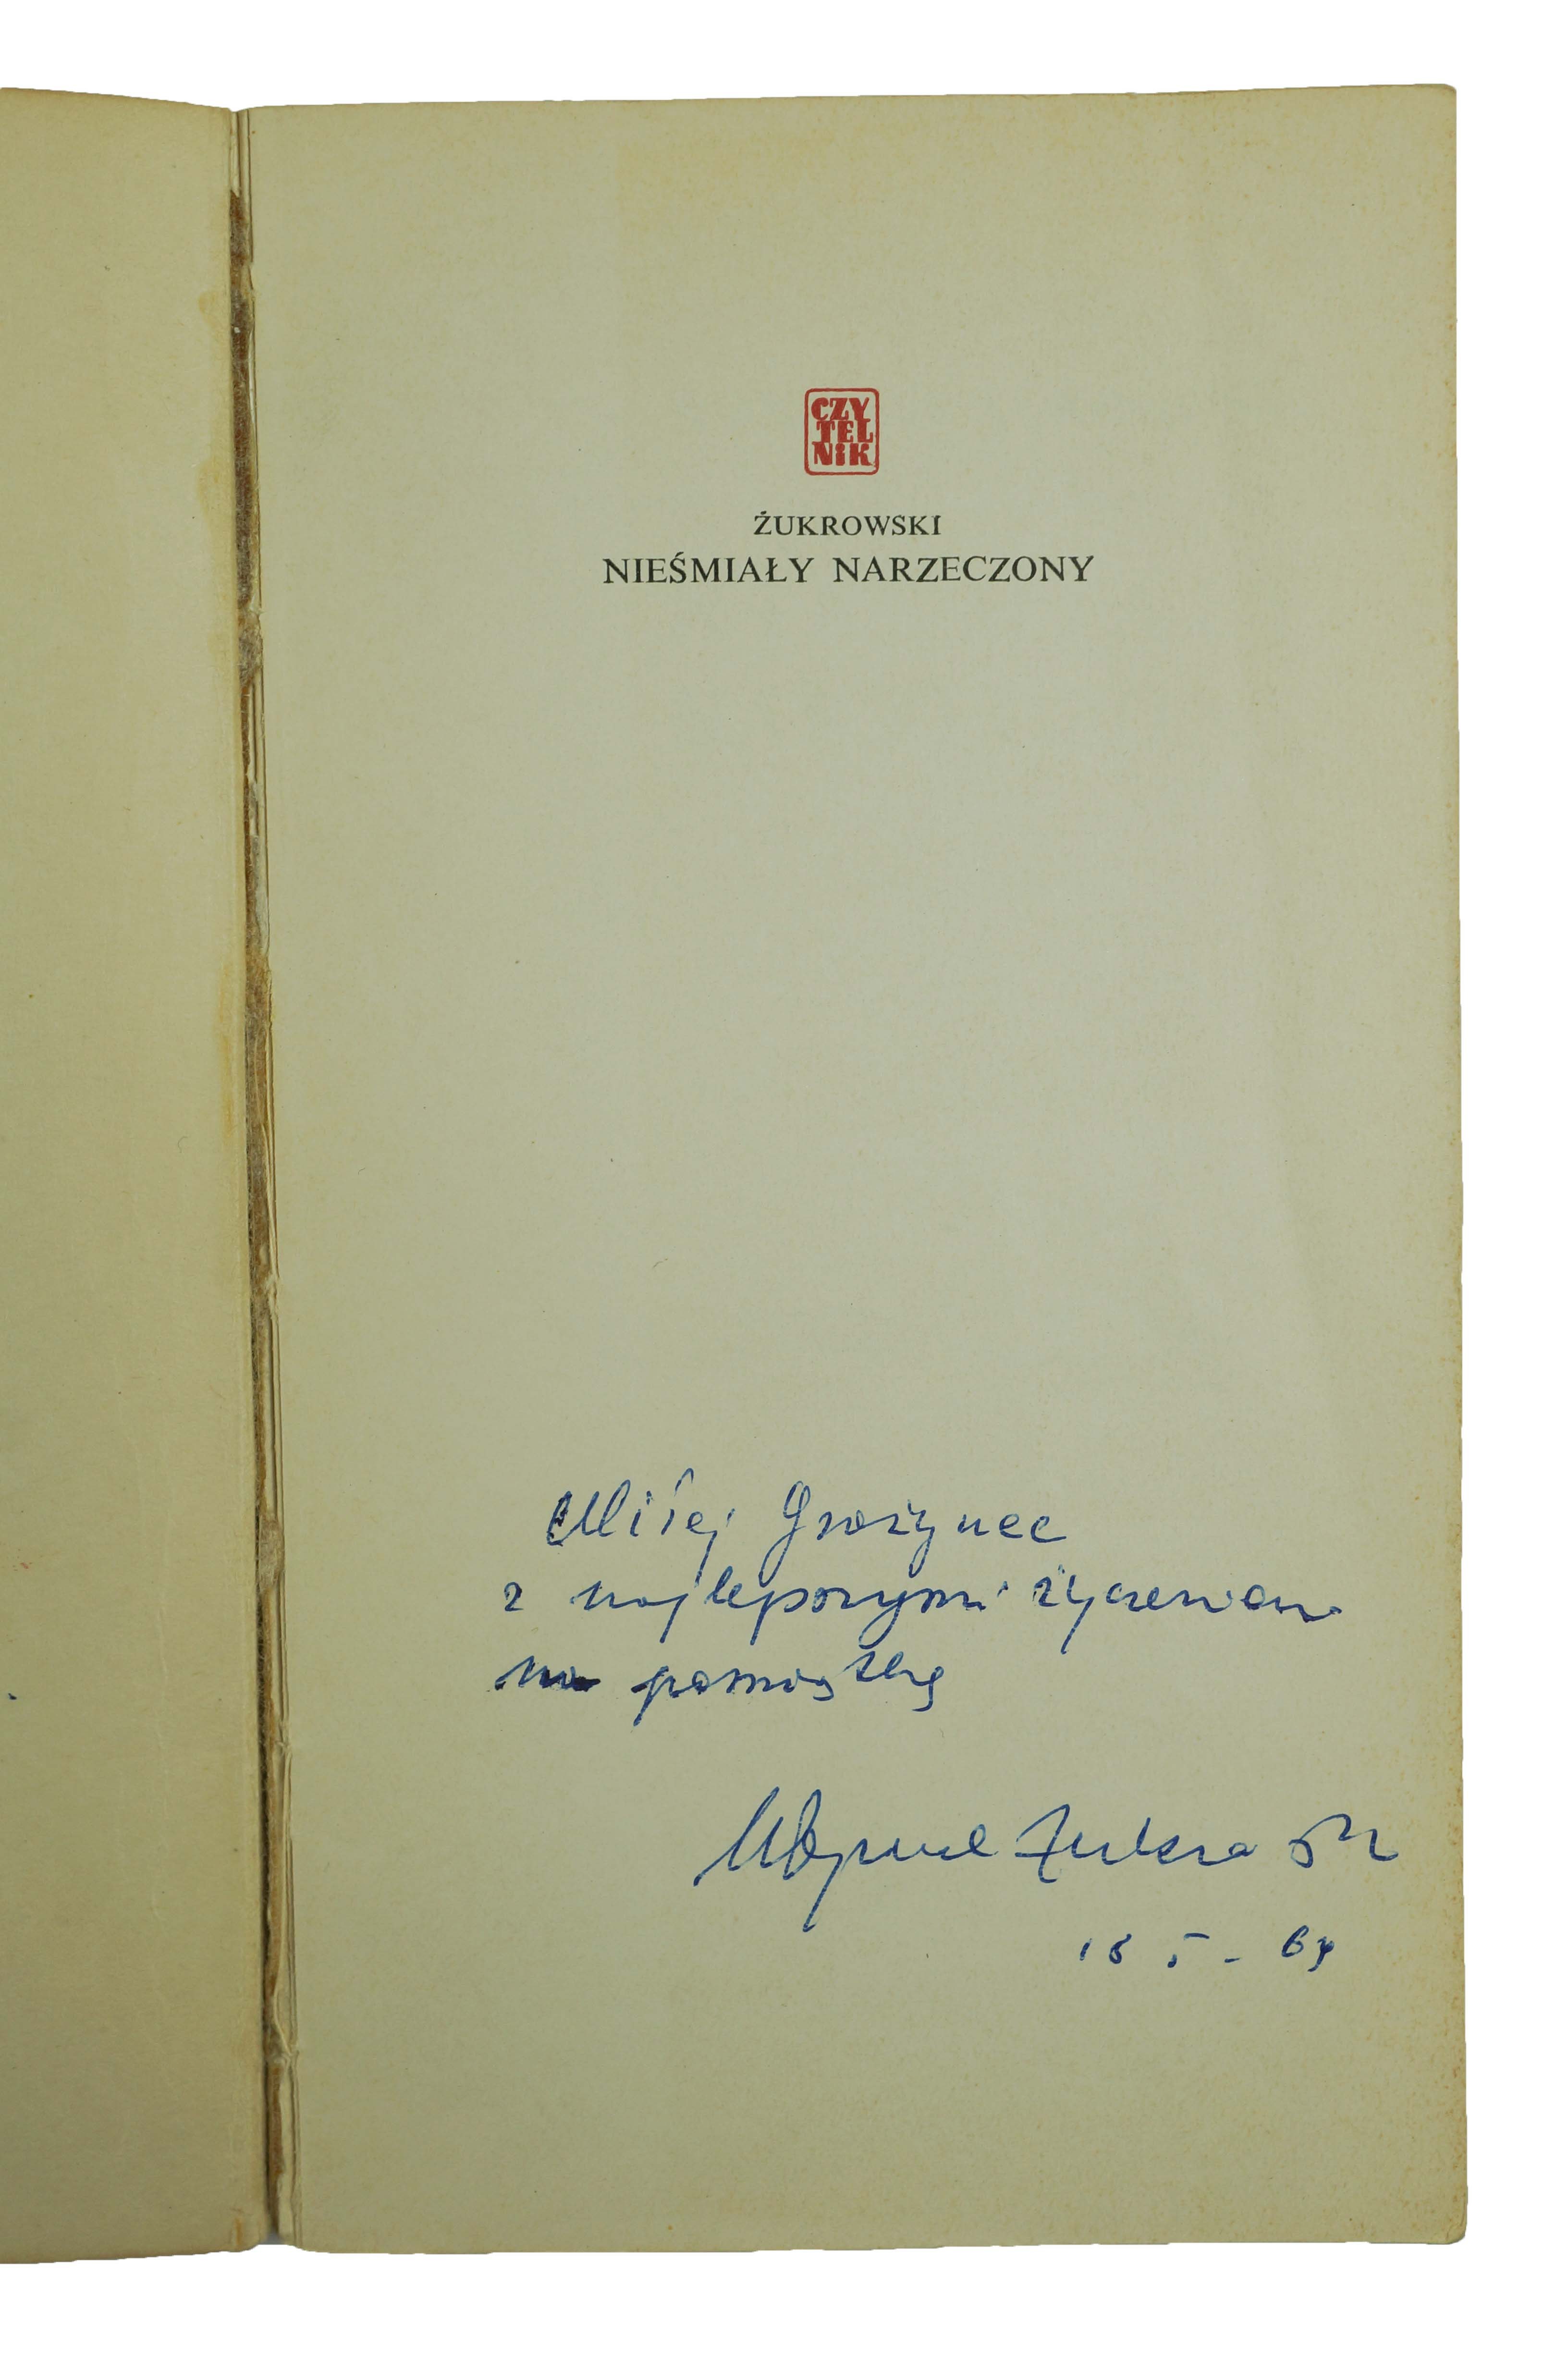 CZY
TEL
NIK
ŻUKROWSKI
NIEŚMIAŁY NARZECZONY
Miłej Grażynce
z najlepszymi życzeniami
na pamiątkę
Wojciech Żukrowski